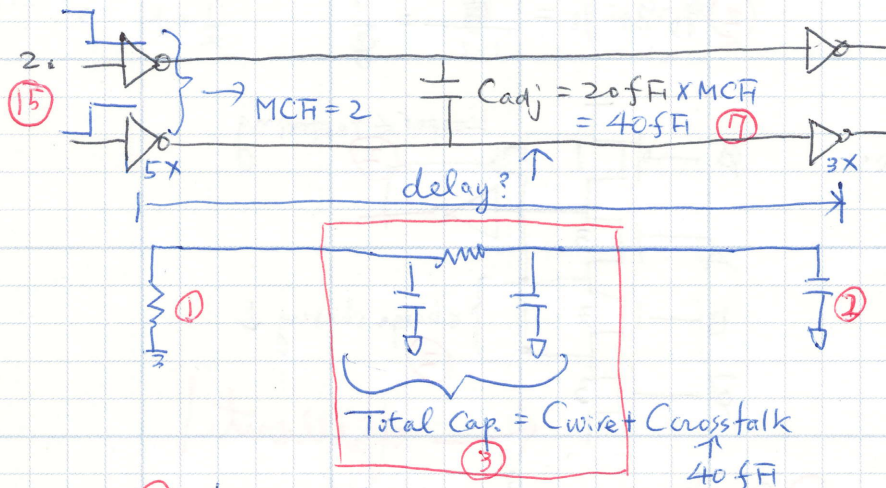 2.
15
→ MCF = 2
Cadj = 20fF × MCF
= 40fF 7
5X
3X
delay?
1
2
Total Cap. = Cwire + Ccrosstalk
3
40fF